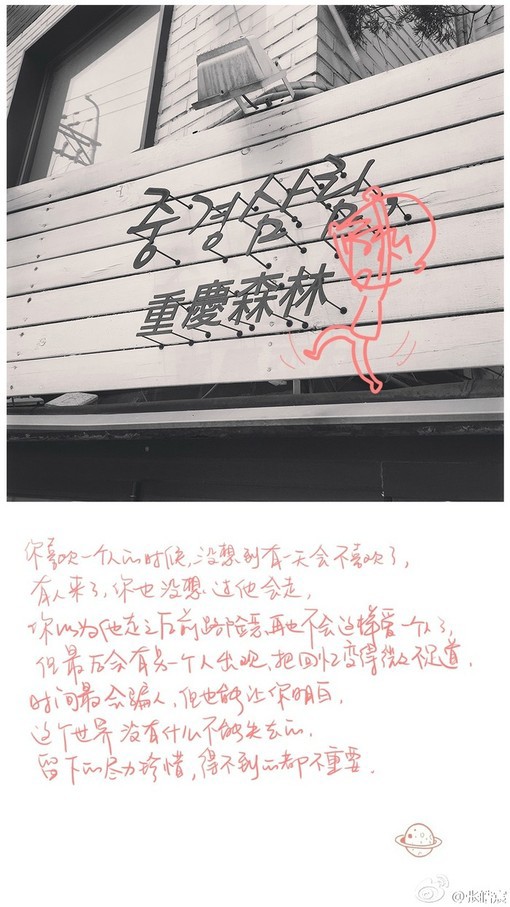 중경삼림
重慶森林
你喜欢一个人的时候,没想到有一天会不喜欢了,
有人来了,你也没想过他会走,
你以为他走之后前路暗,再也不会这样爱一个人了,
但最后会有另一个人出现,把回忆变得微不足道.
时间最会骗人,但也能让你明白,
这个世界没有什么不能失去的,
留下的尽力珍惜,得不到的都不重要.